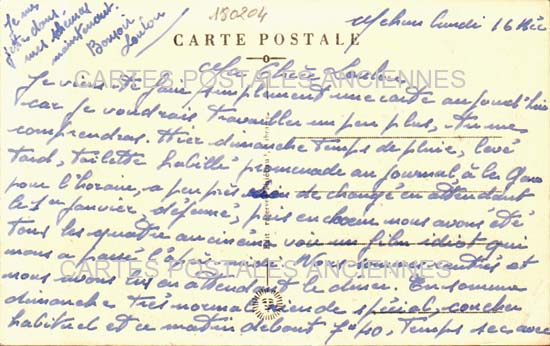 Je me
jette dans
mes thèmes
maintenant.
Bonsoir
Loulou
190204
Mehun lundi 16 Déc
CARTE POSTALE
Ma Chère Loulou
CARTES POSTALES ANCIENNES
Je viens te faire simplement une carte aujourd'hui
car je voudrais travailler un peu plus, tu me
comprendras. Hier dimanche temps de pluie, levé
tard, toilette habillé promenade au journal, à la Gare
pour l'horaire, a peu près rien de changé en attendant
le 1er janvier, déjeuné, puis en choeur nous avons été
tous les quatre au cinéma voir un film idiot qui
nous a passé Nous sommes rentrés et
CARTES POSTALES ANCIENNES
nous avons lu en attendant le diner. En somme
dimanche très normal, rien de spécial, coucher
habituel et ce matin debout 7h10, temps sec avec